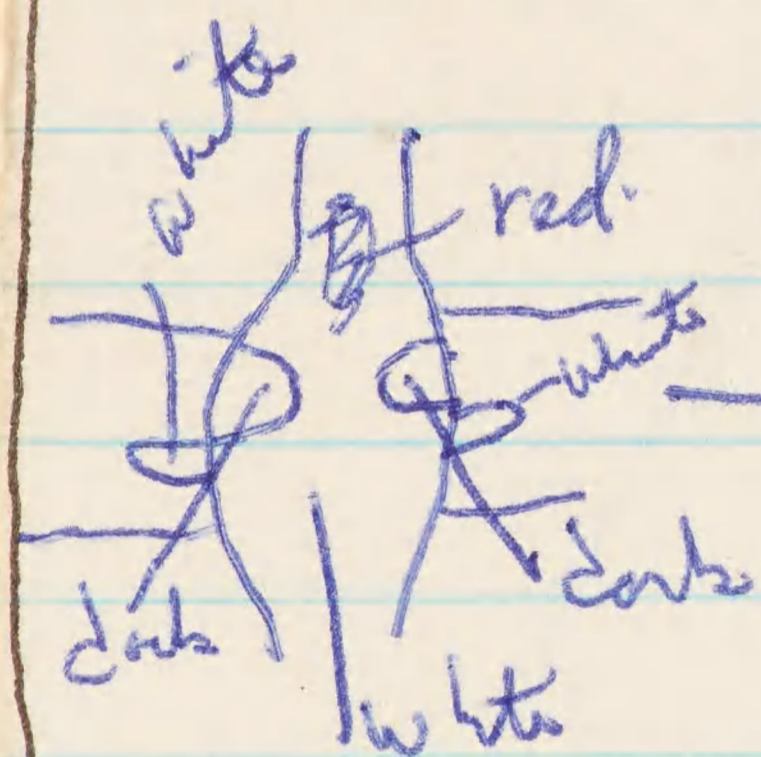 white
red.
white
dark
dark
white